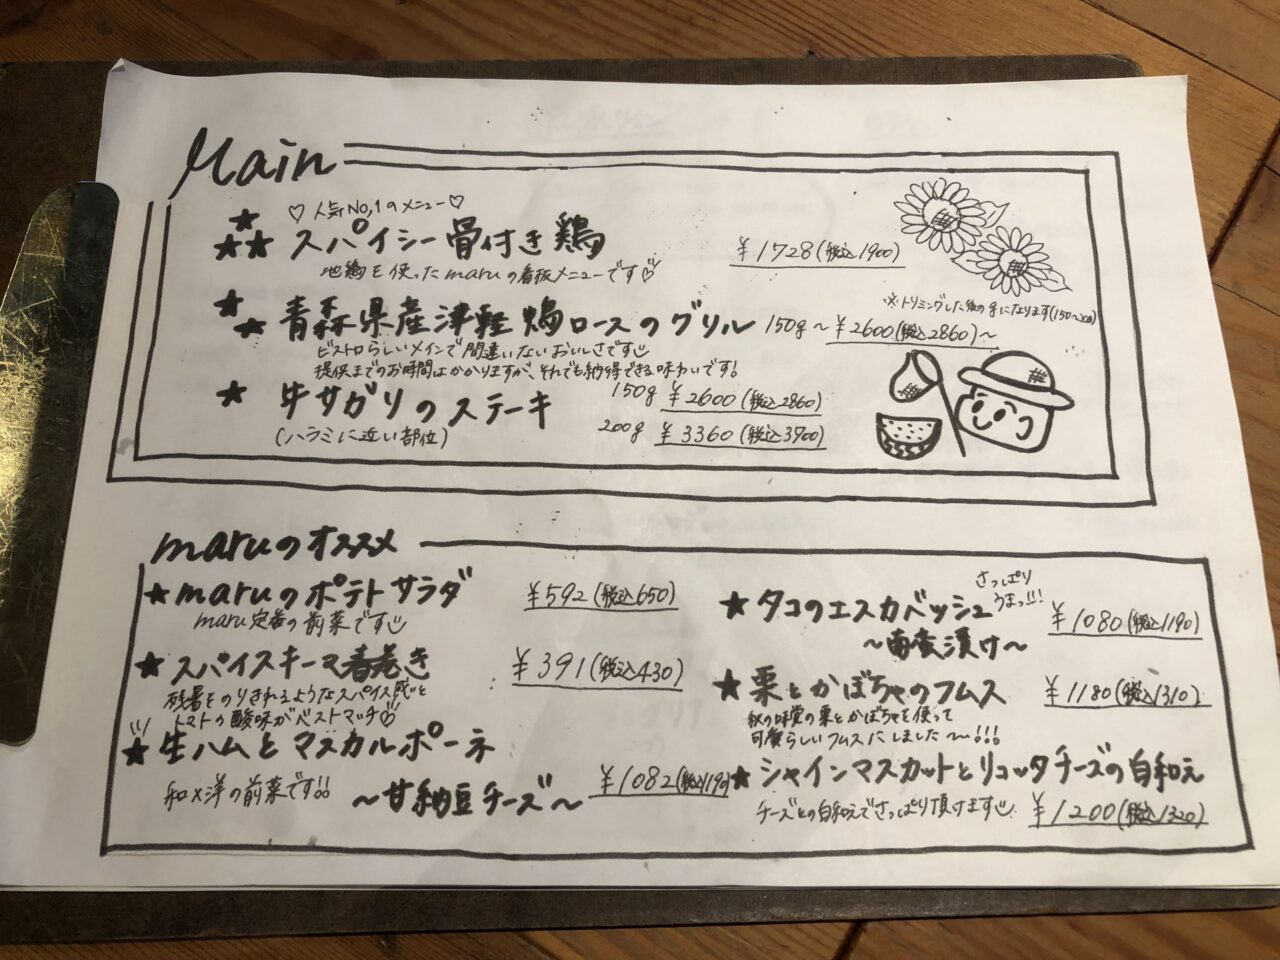 Main
♡人気No,1のメニュー♡
★★★ スパイシー骨付き鶏 ¥1728(税込1900)
地鶏を使ったmaruの看板メニューです♡
※トリミングした後のgになります(150~200)
★★ 青森県産津軽鴨ロースのグリル 150g~ ¥2600(税込2860)~
ビストロらしいメインで間違いないおいしさです
提供までのお時間はかかりますが、それでも納得できる味わいです!
★ 牛サガリのステーキ 150g ¥2600(税込2860)
(ハラミに近い部位) 200g ¥3360(税込3700)
maruのオススメ
★maruのポテトサラダ ¥592(税込650)
maru定番の前菜です
★スパイスキーマ春巻き ¥391(税込430)
残暑をのりきれるようなスパイス感と
トマトの酸味がベストマッチ♡
★生ハムとマスカルポーネ
~甘納豆チーズ~ ¥1082(税込1190)
和×洋の前菜です!!
★タコのエスカベッシュ さっぱり
うまっ!!! ¥1080(税込1190)
~南蛮漬け~
★栗とかぼちゃのフムス ¥1180(税込1310)
秋の味覚の栗とかぼちゃを使って
可愛らしいフムスにしました~!!!
★シャインマスカットとリコッタチーズの白和え
チーズとの白和えでさっぱり頂けます ¥1200(税込1320)